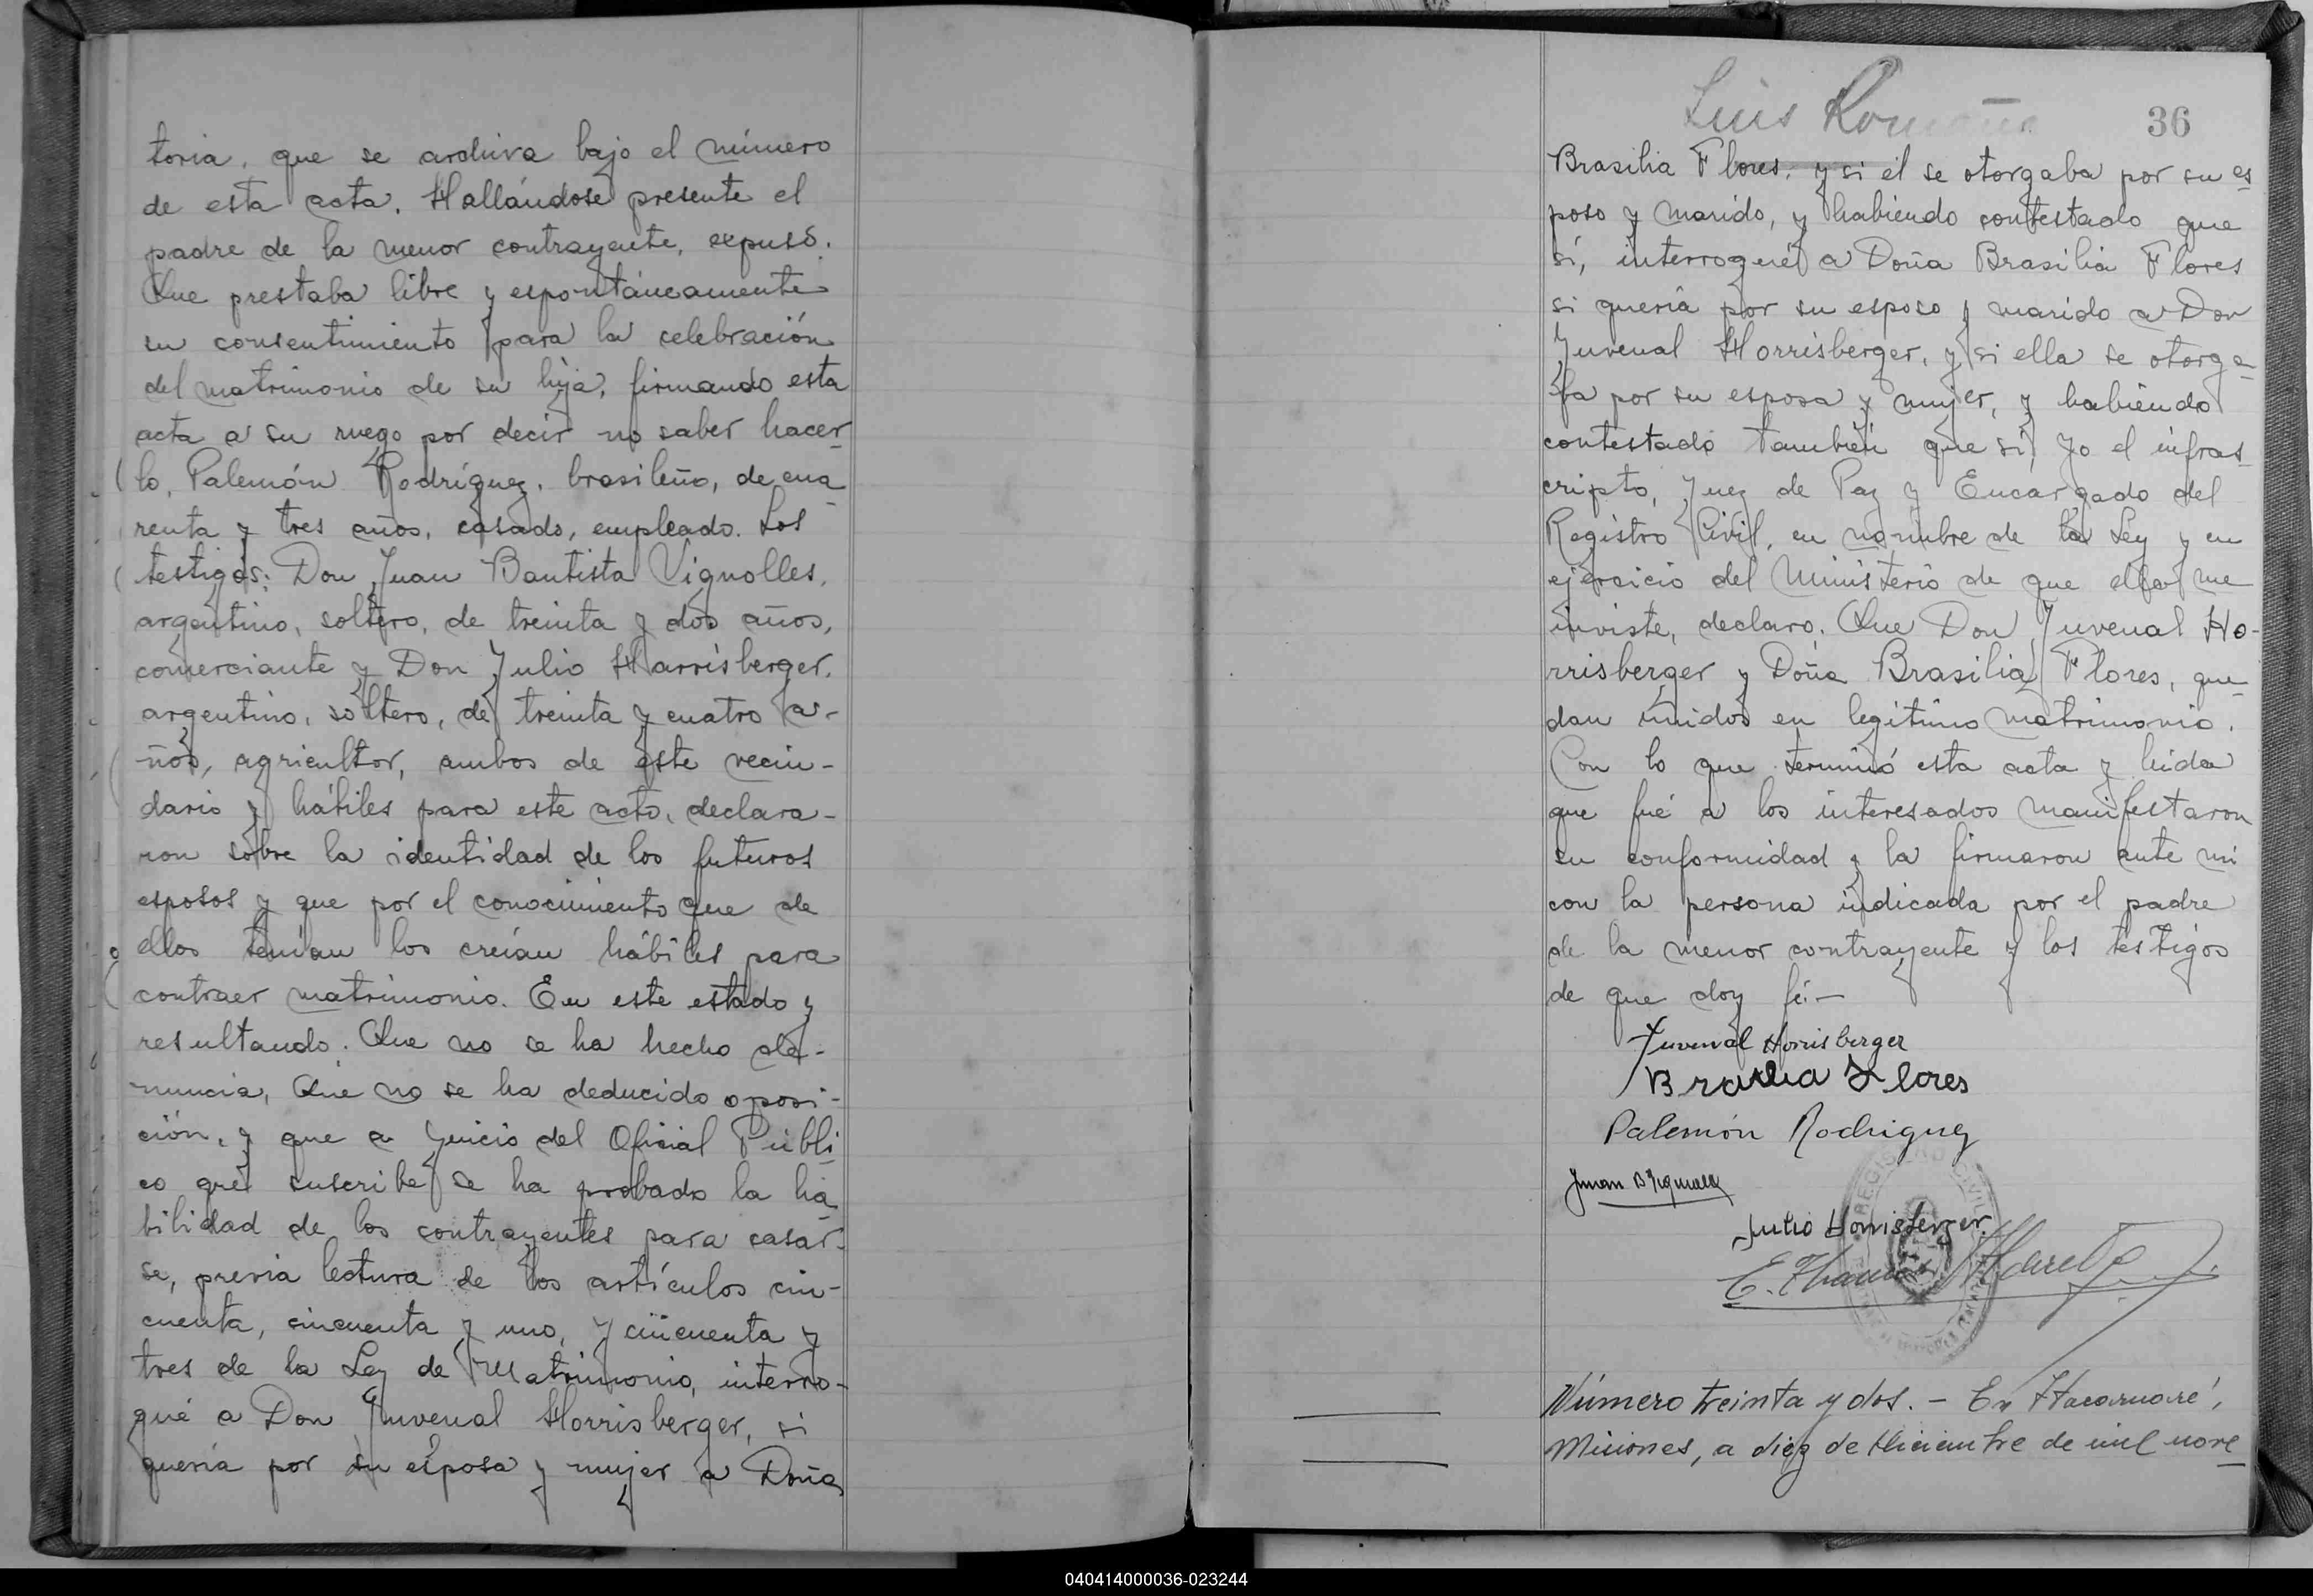 toria, que se archiva bajo el número
de esta acta. Hallándose presente el
padre de la menor contrayente, expuso.
Que prestaba libre y espontáneamente
su consentimiento para la celebración
del matrimonio de su hija, firmando esta
acta a su ruego por decir no saber hacer
lo, Palemón Rodríguez, brasileño, de cua
renta y tres años, casado, empleado. Los
testigos: Don Juan Bautista Vignolles,
argentino, soltero, de treinta y dos años,
comerciante y Don Julio Harrisberger,
argentino, soltero, de treinta y cuatro a-
ños, agricultor, ambos de este vecin-
dario y hábiles para este acto, declara-
ron sobre la identidad de los futuros
esposos y que por el conocimiento que de
ellos tenían los creían hábiles para
contraer matrimonio. En este estado y
resultando. Que no se ha hecho de-
nuncia, Que no se ha deducido oposi-
ción, y que a juicio del Oficial Públi
co que suscribe se ha probado la ha
bilidad de los contrayentes para casar-
se, previa lectura de los artículos cin-
cuenta, cincuenta y uno, y cincuenta y
tres de la Ley de Matrimonio, interro-
gué a Don Juvenal Horrisberger, si
quería por su esposa y mujer a Doña
Luis Romaña
36
Brasilia Flores, y si él se otorgaba por su es
poso y marido, y habiendo contestado que
sí, interrogué a Doña Brasilia Flores
si quería por su esposo y marido a Don
Juvenal Horrisberger, y si ella se otorga-
ba por su esposa y mujer, y habiendo
contestado también que sí, Yo el infras
cripto, Juez de Paz y Encargado del
Registro Civil, en nombre de la Ley y en
ejercicio del Ministerio de que ella me
inviste, declaro. Que Don Juvenal Ho-
rrisberger y Doña Brasilia Flores, que
dan unidos en legítimo matrimonio.
Con lo que terminó esta acta y leida
que fué a los interesados manifestaron
su conformidad y la firmaron ante mi
con la persona indicada por el padre
de la menor contrayente y los testigos
de que doy fé.-
Juvenal Horrisberger
Brasilia Flores
Palemón Rodriguez
Juan B Vignolles
Julio Horrisberger
REGISTRO CIVIL
Número treinta y dos. - En Itacaruaré,
Misiones, a diez de Diciembre de mil nove
040414000036-023244